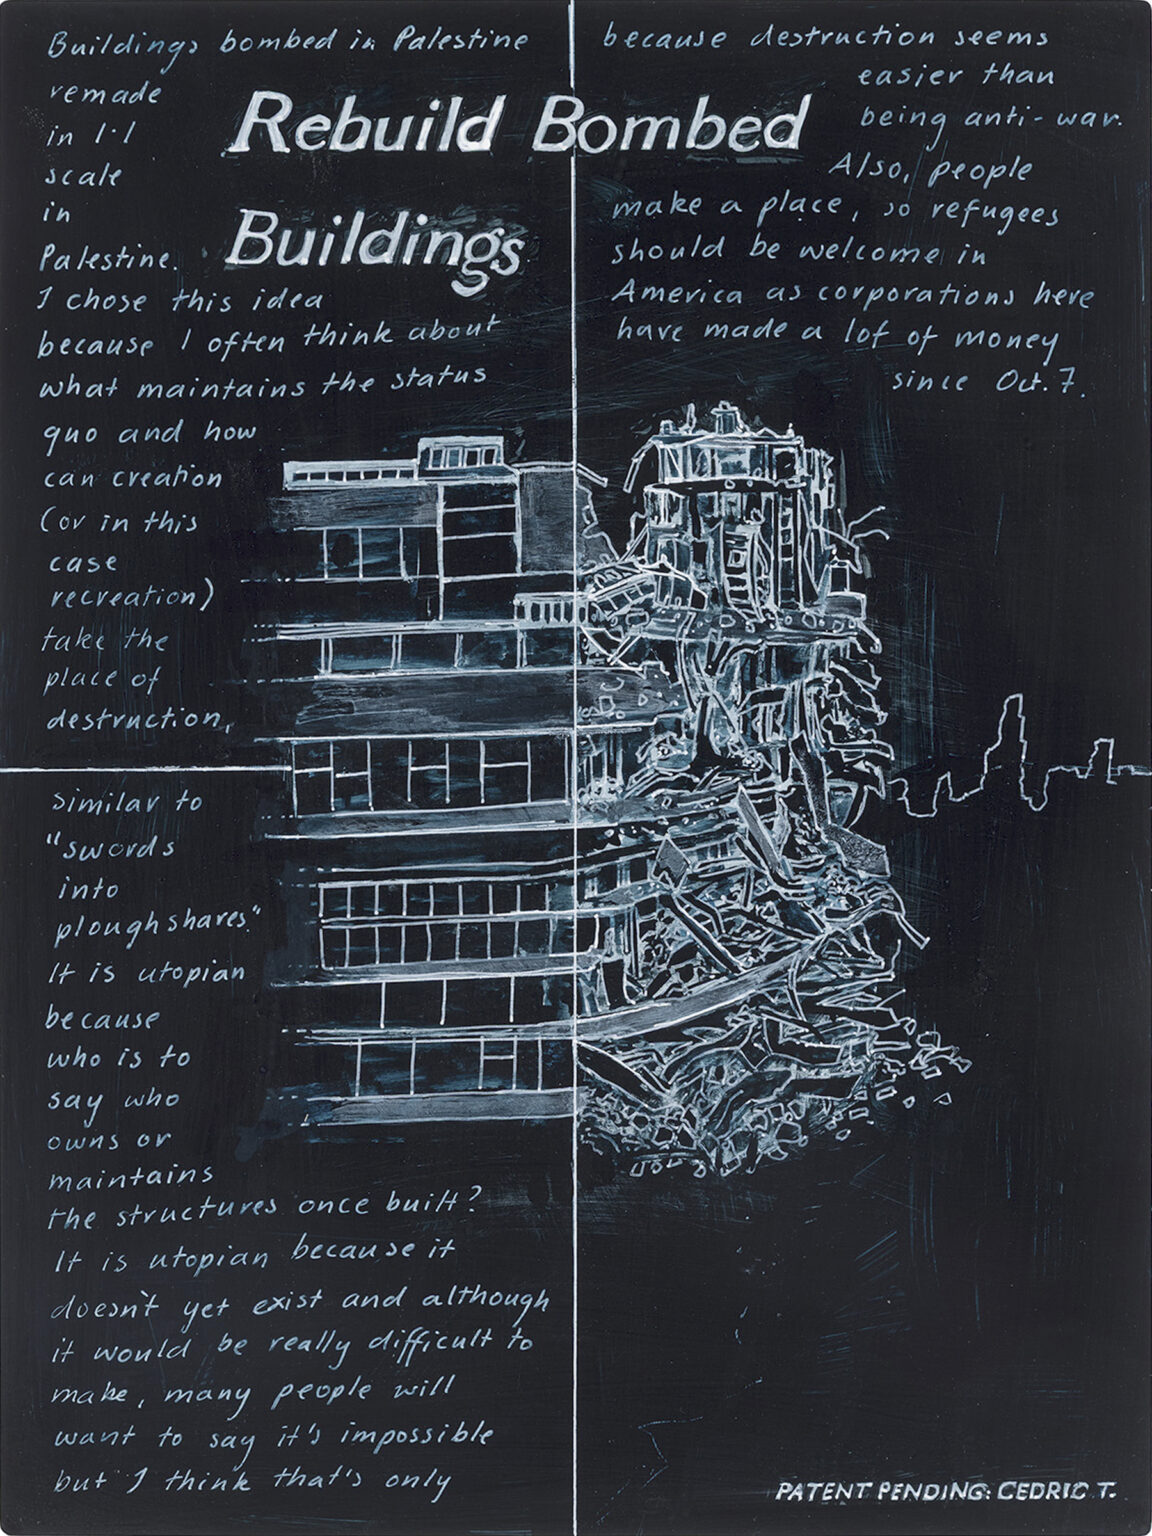 Rebuild Bombed
Buildings
Buildings bombed in Palestine
remade
in 1:1
scale
in
Palestine.
I chose this idea
because I often think about
what maintains the status
quo and how
can creation
(or in this
case
recreation)
take the
place of
destruction,
similar to
"swords
into
ploughshares."
It is utopian
because
who is to
say who
owns or
maintains
the structures once built?
It is utopian because it
doesn't yet exist and although
it would be really difficult to
make, many people will
want to say it's impossible
but I think that's only
because destruction seems
easier than
being anti-war.
Also, people
make a place, so refugees
should be welcome in
America as corporations here
have made a lot of money
since Oct. 7.
PATENT PENDING: CEDRIC T.